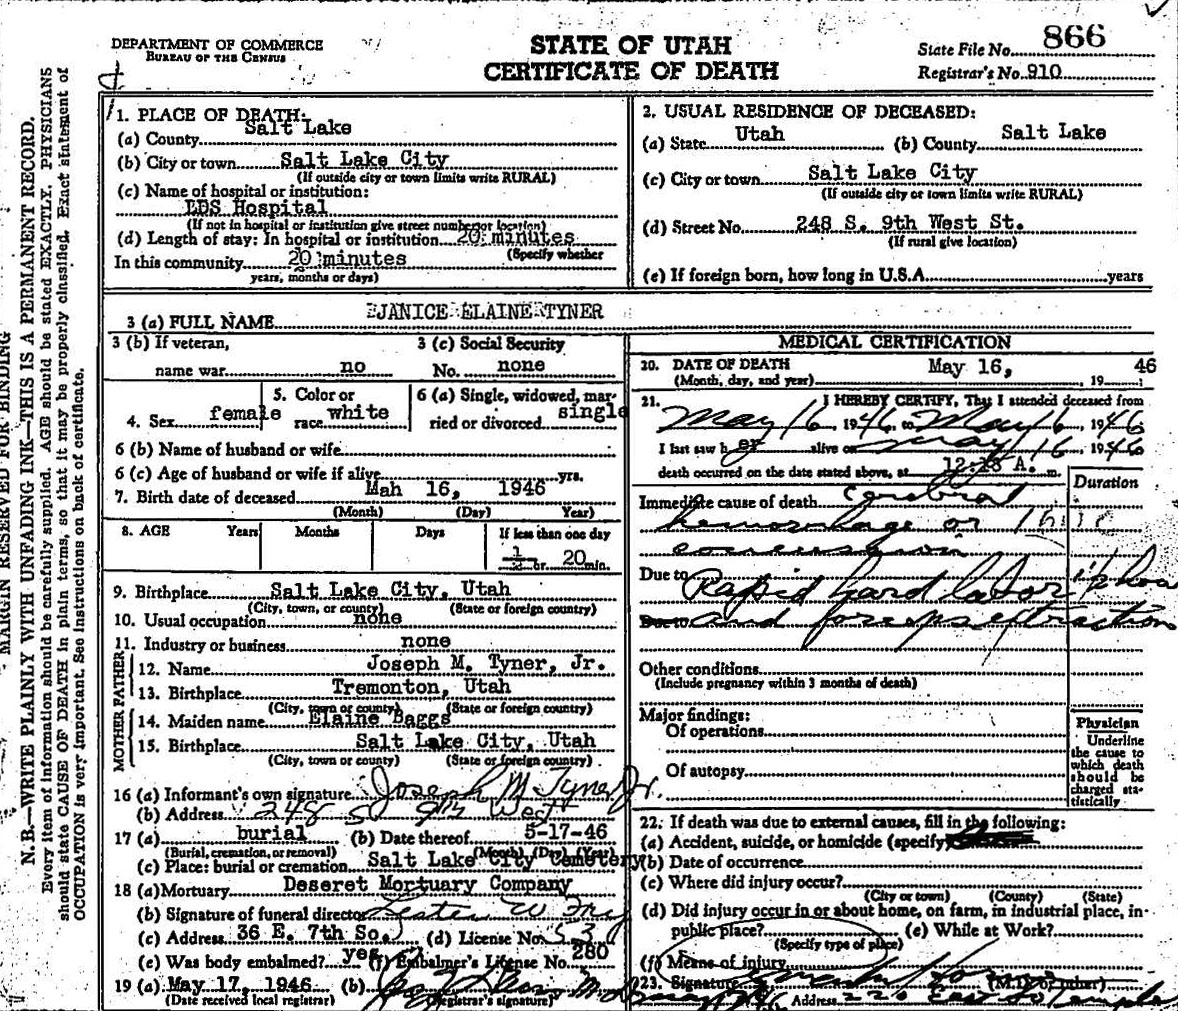 DEPARTMENT OF COMMERCE
BUREAU OF THE CENSUS
STATE OF UTAH
CERTIFICATE OF DEATH
State File No. 866
Registrar's No. 910
MARGIN RESERVED FOR BINDING
N. B.—WRITE PLAINLY WITH UNFADING INK—THIS IS A PERMANENT RECORD.
Every item of information should be carefully supplied. AGE should be stated EXACTLY. PHYSICIANS
should state CAUSE OF DEATH in plain terms, so that it may be properly classified. Exact statement of
OCCUPATION is very important. See instructions on back of certificate.
1. PLACE OF DEATH:
(a) County Salt Lake
(b) City or town Salt Lake City
(If outside city or town limits write RURAL)
(c) Name of hospital or institution:
LDS Hospital
(If not in hospital or institution give street number or location)
(d) Length of stay: In hospital or institution 20 minutes
(Specify whether
In this community 20 minutes
years, months or days)
2. USUAL RESIDENCE OF DECEASED:
(a) State Utah (b) County Salt Lake
(c) City or town Salt Lake City
(If outside city or town limits write RURAL)
(d) Street No. 248 S. 9th West St.
(If rural give location)
(e) If foreign born, how long in U.S.A. years
3 (a) FULL NAME JANICE ELAINE TYNER
3 (b) If veteran,
name war no
3 (c) Social Security
No. none
4. Sex female
5. Color or
race white
6 (a) Single, widowed, mar-
ried or divorced single
6 (b) Name of husband or wife
6 (c) Age of husband or wife if alive yrs.
7. Birth date of deceased Mah 16, 1946
(Month) (Day) Year)
8. AGE Years Months Days If less than one day
hr. 20 min.
9. Birthplace Salt Lake City, Utah
(City, town, or county) (State or foreign country)
10. Usual occupation none
11. Industry or business none
FATHER
12. Name Joseph M. Tyner, Jr.
13. Birthplace Tremonton, Utah
(City, town or county) (State or foreign country)
MOTHER
14. Maiden name Elaine Baggs
15. Birthplace Salt Lake City, Utah
(City, town or county) (State or foreign country)
16 (a) Informant's own signature Joseph M Tyner Jr.
(b) Address 248 S 9th West
17 (a) burial (b) Date thereof 5-17-46
(Burial, cremation, or removal) (Month) (Day) (Year)
(c) Place: burial or cremation Salt Lake City Cemetery
18 (a) Mortuary Deseret Mortuary Company
(b) Signature of funeral director
(c) Address 36 E. 7th So. (d) License No.
(e) Was body embalmed? yes (f) Embalmer's License No. 280
19 (a) May 17, 1946 (b)
(Date received local registrar) (Registrar's signature)
MEDICAL CERTIFICATION
20. DATE OF DEATH May 16, 19 46
(Month, day, and year)
21. I HEREBY CERTIFY, That I attended deceased from
May 16 1946 to May 16, 1946
I last saw her alive on May 16 1946
death occurred on the date stated above, at A. m.
Duration
Immediate cause of death cerebral
hemorrhage or
concussion
Due to Rapid hard labor
Due to and forceps extraction
Other conditions
(Include pregnancy within 3 months of death)
Major findings:
Of operations
Of autopsy
Physician
Underline
the cause to
which death
should be
charged sta-
tistically
22. If death was due to external causes, fill in the following:
(a) Accident, suicide, or homicide (specify)
(b) Date of occurrence
(c) Where did injury occur?
(City or town) (County) (State)
(d) Did injury occur in or about home, on farm, in industrial place, in
public place? (e) While at Work?
(Specify type of place)
(f) Means of injury
23. Signature (M.D. or other)
Address 220 East So Temple